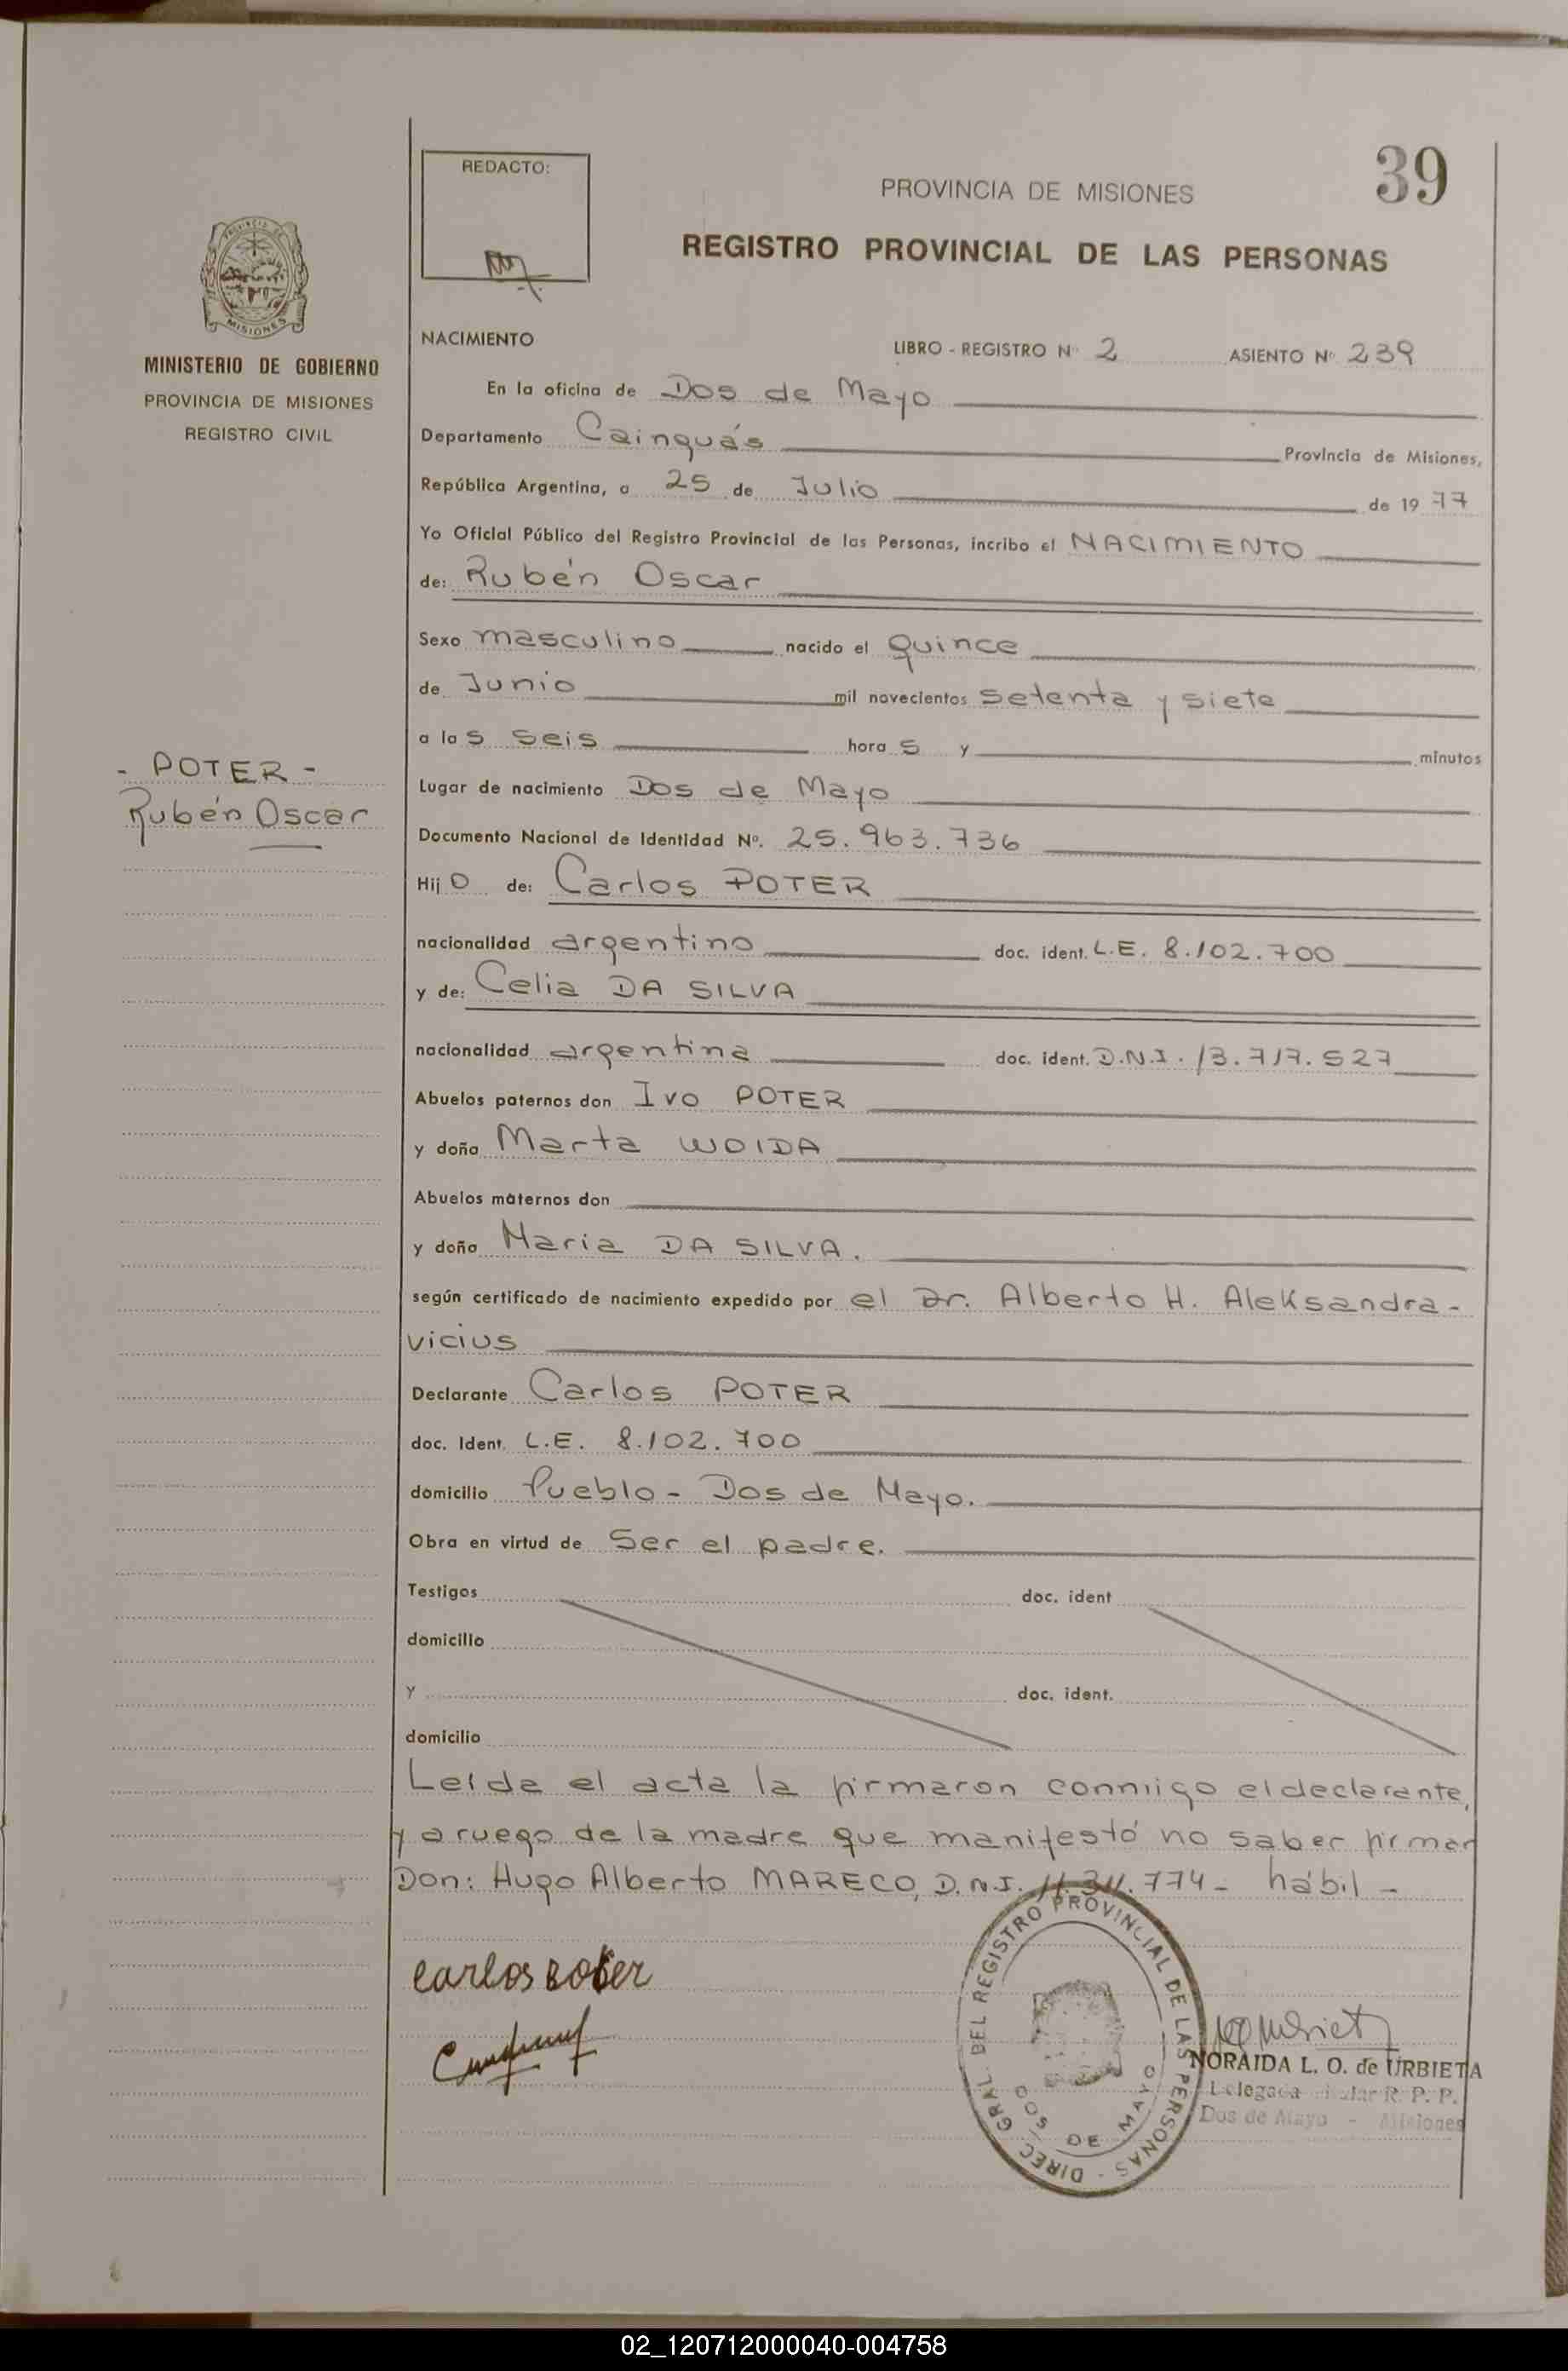 39
REDACTO:
PROVINCIA DE MISIONES
REGISTRO PROVINCIAL DE LAS PERSONAS
MISIONES
MINISTERIO DE GOBIERNO
PROVINCIA DE MISIONES
REGISTRO CIVIL
- POTER -
Rubén Oscar
NACIMIENTO LIBRO - REGISTRO Nº 2 ASIENTO Nº 239
En la oficina de Dos de Mayo
Departamento Cainguás Provincia de Misiones,
República Argentina, a 25 de Julio de 1977
Yo Oficial Público del Registro Provincial de las Personas, incribo el NACIMIENTO
de: Rubén Oscar
Sexo masculino nacido el quince
de Junio mil novecientos setenta y siete
a las seis horas y minutos
Lugar de nacimiento Dos de Mayo
Documento Nacional de Identidad Nº. 25.963.736
Hijo de: Carlos POTER
nacionalidad argentino doc. ident. L.E. 8.102.700
y de: Celia DA SILVA
nacionalidad argentina doc. ident. D.N.I. 13.717.527
Abuelos paternos don Ivo POTER
y doña Marta WOIDA
Abuelos maternos don
y doña Maria DA SILVA.
según certificado de nacimiento expedido por el Dr. Alberto H. Aleksandra-
vicius
Declarante Carlos POTER
doc. Ident. L.E. 8.102.700
domicilio Pueblo - Dos de Mayo.
Obra en virtud de Ser el padre.
Testigos doc. ident
domicilio
y doc. ident.
domicilio
Leída el acta la firmaron conmigo el declarante,
y a ruego de la madre que manifestó no saber firmar
Don: Hugo Alberto MARECO, D.N.I. 11.311.774 - hábil -
carlos poter
DIREC. GRAL. DEL REGISTRO PROVINCIAL DE LAS PERSONAS
DOS DE MAYO
NORAIDA L. O. de URBIETA
Delegada R. P. P.
Dos de Mayo - Misiones
02_120712000040-004758